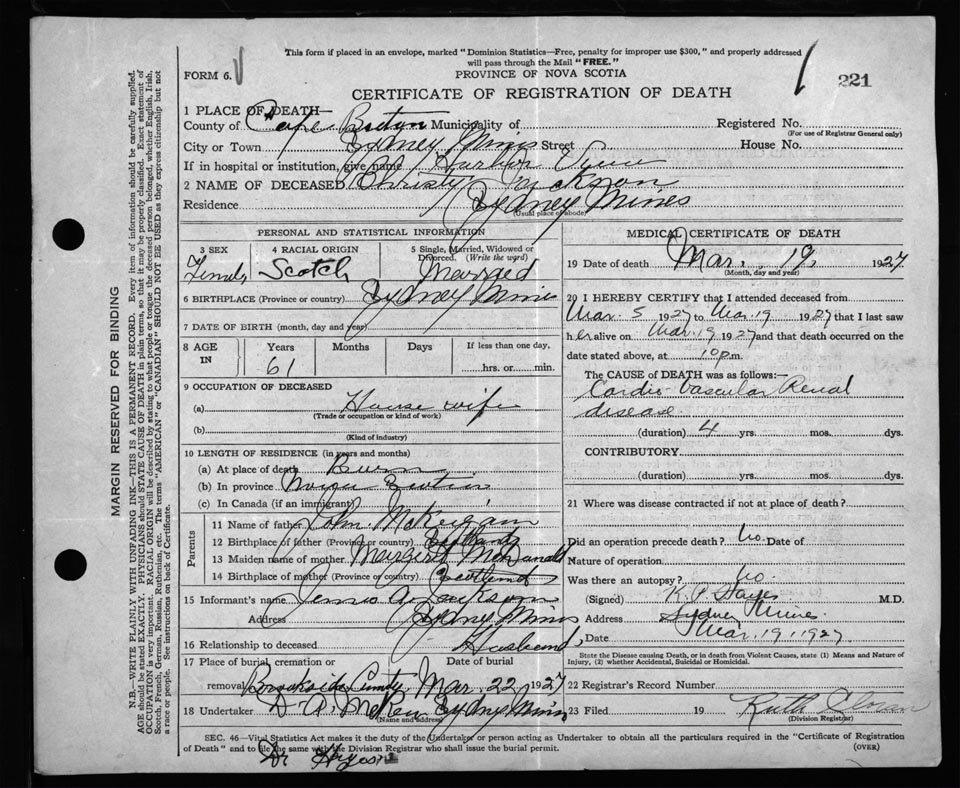 This form if placed in an envelope, marked "Dominion Statistics—Free, penalty for improper use $300," and properly addressed
will pass through the Mail "FREE."
FORM 6.
PROVINCE OF NOVA SCOTIA
221
CERTIFICATE OF REGISTRATION OF DEATH
1 PLACE OF DEATH
County of Cape Breton Municipality of
Registered No.
(For use of Registrar General only)
City or Town Sydney Mines Street House No.
If in hospital or institution, give name Harbor View
2 NAME OF DECEASED Christy Jackson
Residence Sydney Mines
(Usual place of abode)
PERSONAL AND STATISTICAL INFORMATION
3 SEX 4 RACIAL ORIGIN 5 Single, Married, Widowed or
Divorced. (Write the word)
Female Scotch Married
6 BIRTHPLACE (Province or country) Sydney Mines
7 DATE OF BIRTH (month, day and year)
8 AGE IN Years Months Days If less than one day,
61 hrs. or min.
9 OCCUPATION OF DECEASED
(a) House wife
(Trade or occupation or kind of work)
(b)
(Kind of industry)
10 LENGTH OF RESIDENCE (in years and months)
(a) At place of death
(b) In province
(c) In Canada (if an immigrant)
Parents
11 Name of father John McKeigan
12 Birthplace of father (Province or country) Scotland
13 Maiden name of mother Margaret McDonald
14 Birthplace of mother (Province or country) Scotland
15 Informant's name Jackson
Address Sydney Mines
16 Relationship to deceased Husband
17 Place of burial, cremation or Date of burial
removal Brookside Mar. 22 1927
18 Undertaker D A Sydney Mines
(Name and address)
MEDICAL CERTIFICATE OF DEATH
19 Date of death Mar. 19, 1927
(Month, day and year)
20 I HEREBY CERTIFY that I attended deceased from
Mar. 5 1927 to Mar 19 1927 that I last saw
her alive on Mar. 19 1927 and that death occurred on the
date stated above, at 10 p.m.
The CAUSE of DEATH was as follows:—
Cardio Vascular Renal
disease
(duration) 4 yrs. mos. dys.
CONTRIBUTORY
(duration) yrs. mos. dys.
21 Where was disease contracted if not at place of death?
Did an operation precede death? No. Date of
Nature of operation
Was there an autopsy? No.
(Signed) M.D.
Address Sydney Mines
Date Mar. 19, 1927
State the Disease Causing Death, or in death from Violent Causes, state (1) Means and Nature of
Injury, (2) whether Accidental, Suicidal or Homicidal.
22 Registrar's Record Number
23 Filed 19 Ruth
(Division Registrar)
SEC. 46—Vital Statistics Act makes it the duty of the Undertaker or person acting as Undertaker to obtain all the particulars required in the "Certificate of Registration
of Death" and to file the same with the Division Registrar who shall issue the burial permit. (OVER)
Dr
MARGIN RESERVED FOR BINDING
N.B.—WRITE PLAINLY WITH UNFADING INK—THIS IS A PERMANENT RECORD. Every item of information should be carefully supplied.
AGE should be stated EXACTLY. PHYSICIANS should STATE CAUSE OF DEATH in plain terms, so that it may be properly classified. Exact statement of
OCCUPATION is very important. RACIAL ORIGIN will be described by stating to what people or tongue the deceased person belonged, whether English, Irish,
Scotch, French, German, Russian, Ruthenian, etc. The terms "AMERICAN" or "CANADIAN" SHOULD NOT BE USED as they express citizenship but not
a race or people. See instructions on back of Certificate.